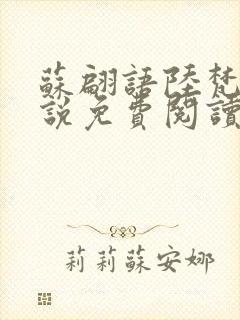 蘇翩語陸梵
説免費閱讀
莉莉蘇安娜